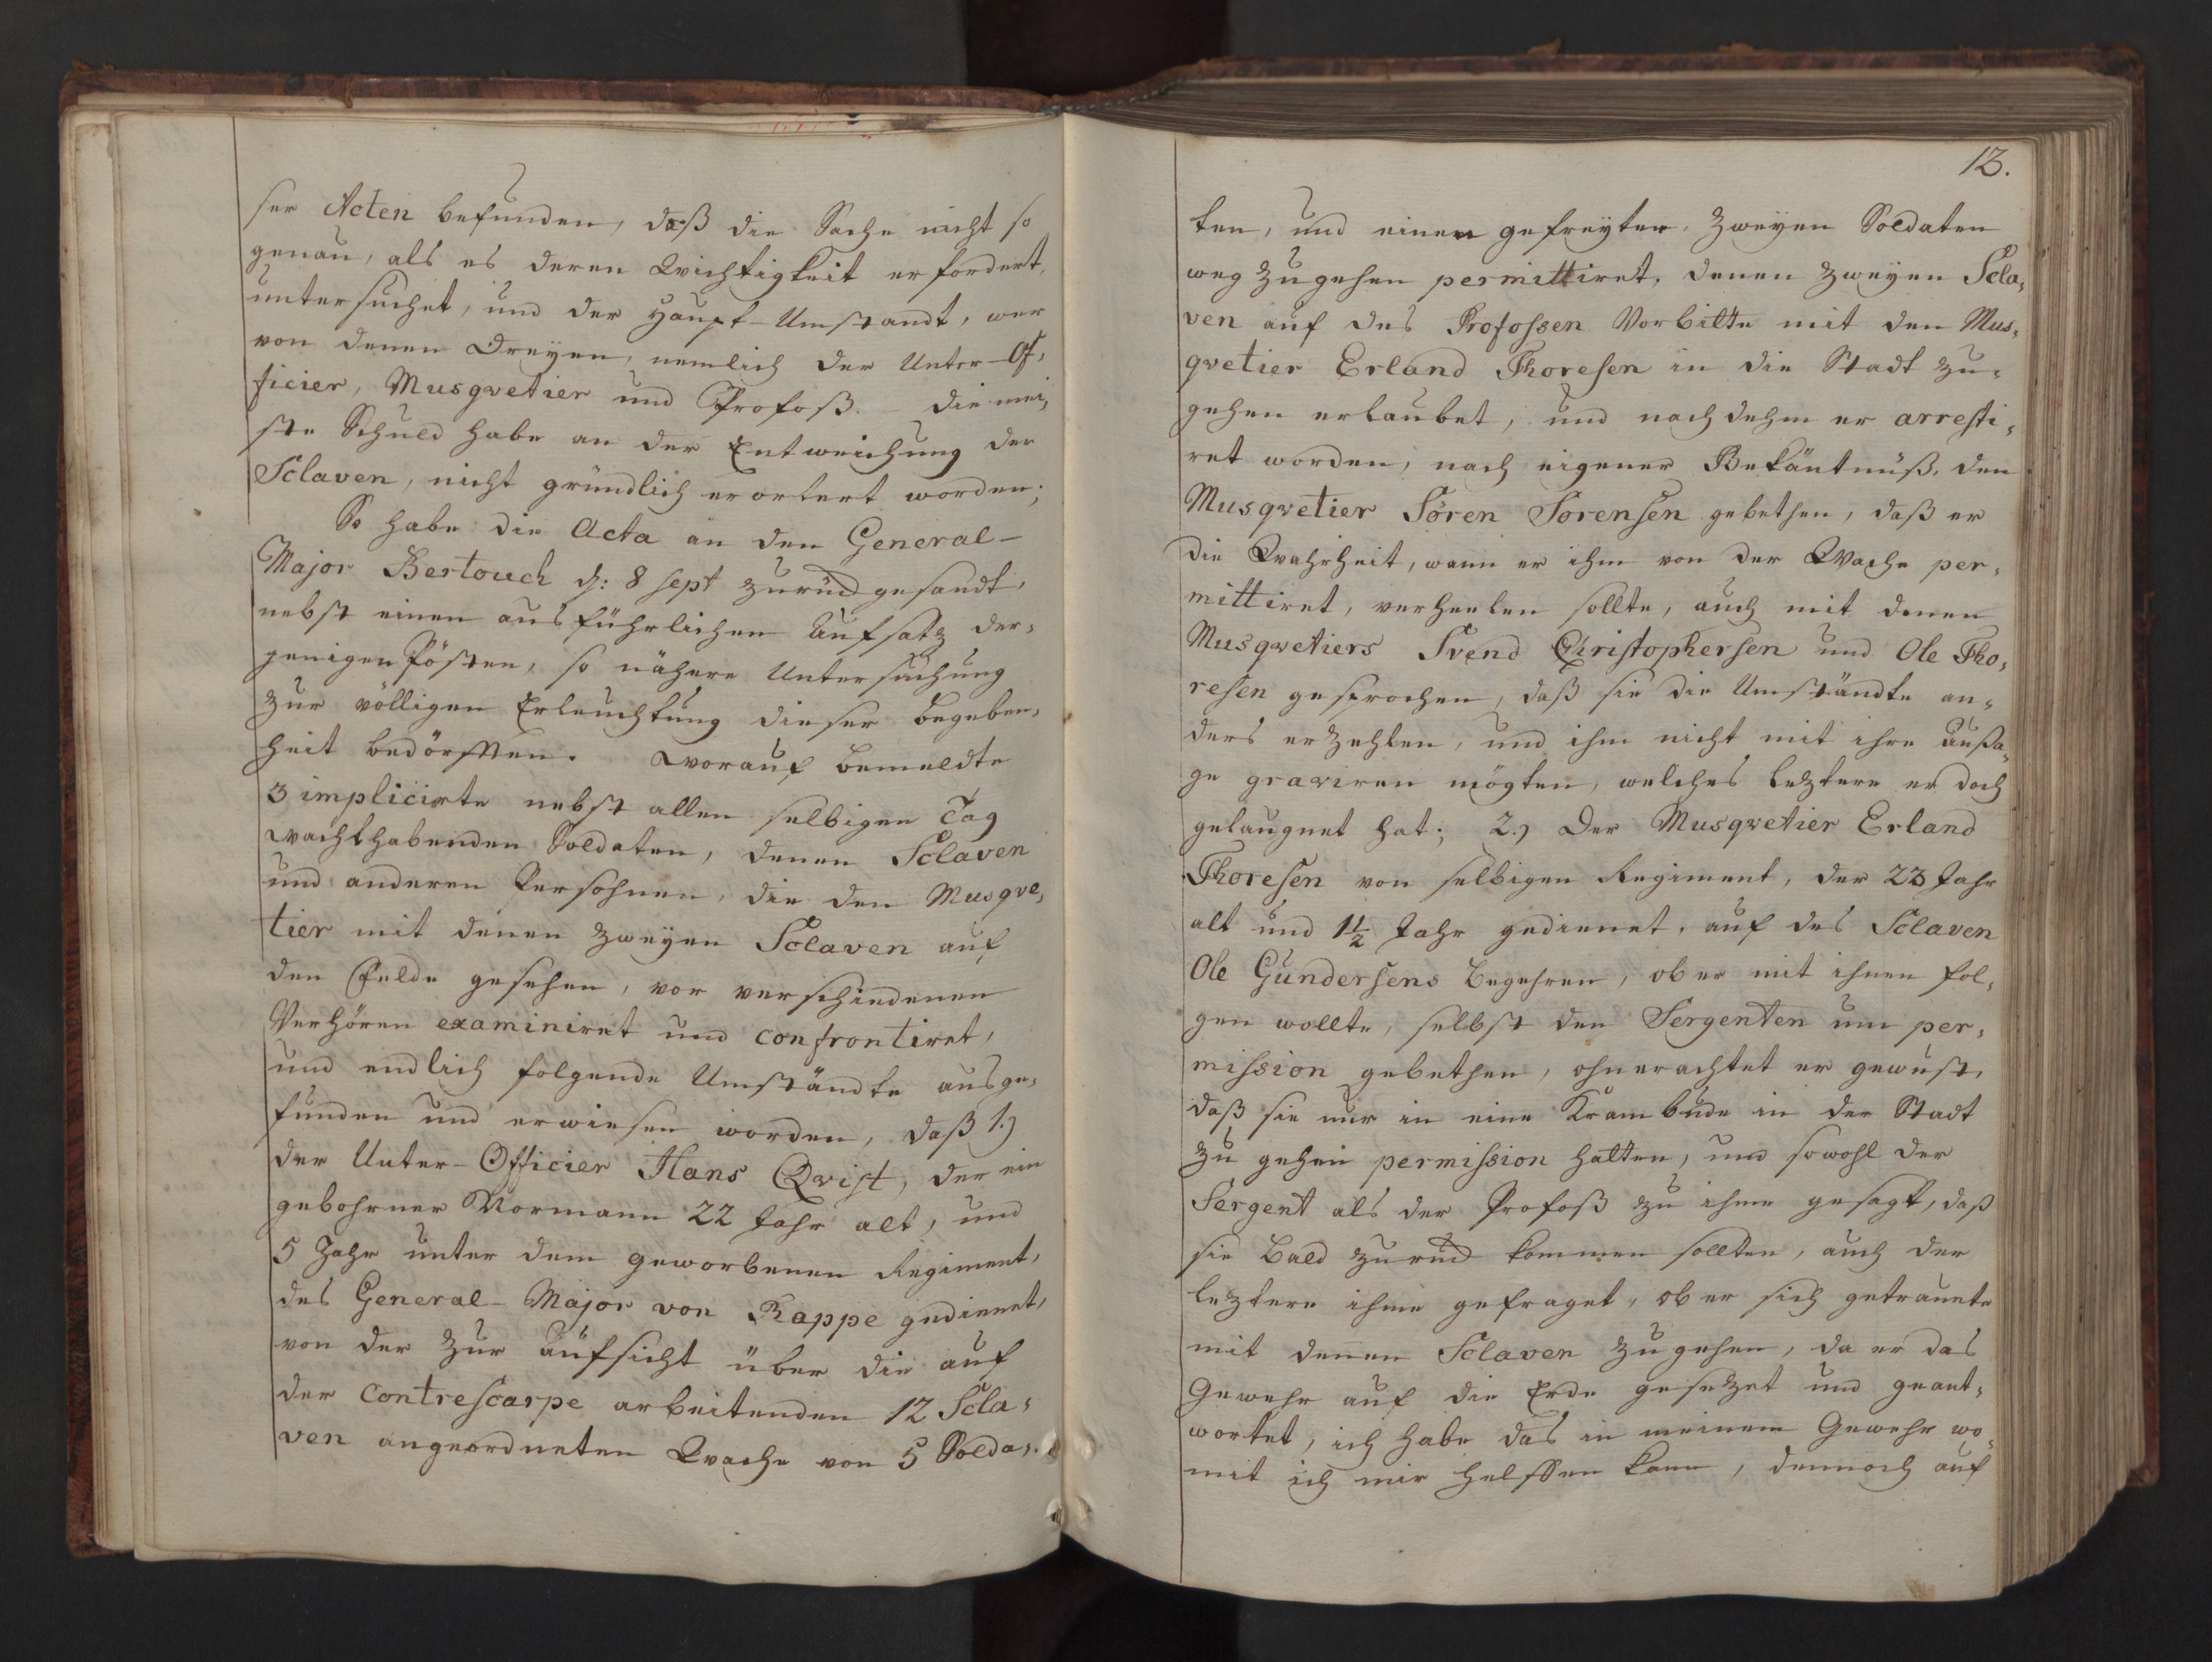 ser Acten befunden, daß die Sache nicht so
genau, als es deren Wichtigkeit erfordert,
untersuchet, und der Haupt-Umstandt, wer
von denen Dreyen, nemlich der Unter-Of-
ficier, Musqvetier und Profoß die mei-
ste Schuld habe an der Entweichung der
Sclaven, nicht gründlich erortert worden;
So habe die Acta an den General-
Major Bertouch d: 8 sept zurück gesandt,
nebst einen ausführlichen Aufsatz der-
jenigen Pösten, so nähere Untersuchung
zur völligen Erleuchtung dieser Begeben-
heit bedörfften. Worauf bemeldte
3 implicirte nebst allen selbigen Tag
wachthabenden Soldaten, denen Sclaven
und anderen Persohnen, die den Musqve-
tier mit denen zweyen Sclaven auf
den Felde gesehen, vor verschiedenen
Verhören examiniret und confrontiret,
und endlich folgende Umständte ausge-
funden und erwiesen worden, daß 1.)
der Unter-Officier Hans Qvist, der ein
gebohrner Normann 22 Jahr alt, und
5 Jahr unter dem geworbenen Regiment,
des General-Major von Rappe gedienet,
von der zur Aufsicht über die auf
der Contrescarpe arbeitenden 12 Scla-
ven angeordneten Wache von 5 Solda-
13.
ten, und einen gefreyter, zweyen Soldaten
weg zugehen permittiret, denen zweyen Scla-
ven auf des Profossen Vorbitte mit den Mus-
qvetier Erland Thoresen in die Stadt zu-
gehen erlaubet, und nachdehm er arresti-
ret worden, nach eigener Bekäntnüß, den
Musqvetier Sören Sorensen gebethen, daß er
die Wahrheit, wann er ihm von der Wache per-
mittiret, verheelen sollte, auch mit denen
Musqvetiers Svend Christophersen und Ole Tho-
resen gesprochen, daß sie die Umständte an-
ders erzehlen, und ihm nicht mit ihre Außa-
ge graviren mögten, welches leztere er doch
gelaugnet hat; 2.) Der Musqvetier Erland
Thoresen von selbigen Regiment, der 23 Jahr
alt und 1½ Jahr gedienet, auf des Sclaven
Ole Gundersens Begehren, ob er mit ihnen fol-
gen wollte, selbst den Sergenten um per-
mission gebethen, ohnerachtet er gewust,
daß sie nur in eine Krambude in der Stadt
zu gehen permission hatten, und sowohl der
Sergent als der Profoß zu ihme gesagt, daß
sie bald zurück kommen sollten, auch der
leztere ihme gefraget, ob er sich getrauete
mit denen Sclaven zugehen, da er das
Gewehr auf die Erde gesezet und geant-
wortet, ich habe das in meinem Gewehr wo-
mit ich mir helffen kann, dennoch auf